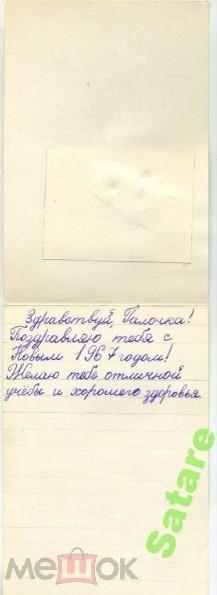 Здравствуй, Галочка!
Поздравляю тебя с
Новым 1967 годом!
Желаю тебе отличной
учёбы и хорошего здоровья.
Satare
мешок